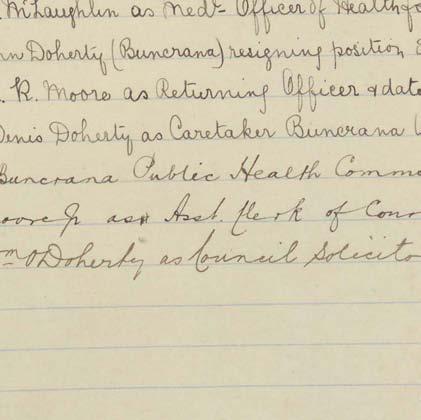 McLaughlin as Medl Officer of Health fo
nn Doherty (Buncrana) resigning position
. R. Moore as Returning Officer & date
Denis Doherty as Caretaker Buncrana
Buncrana Public Health Comm
oore Jr as Asst. Clerk of Coun
m O'Doherty as Council Solicito